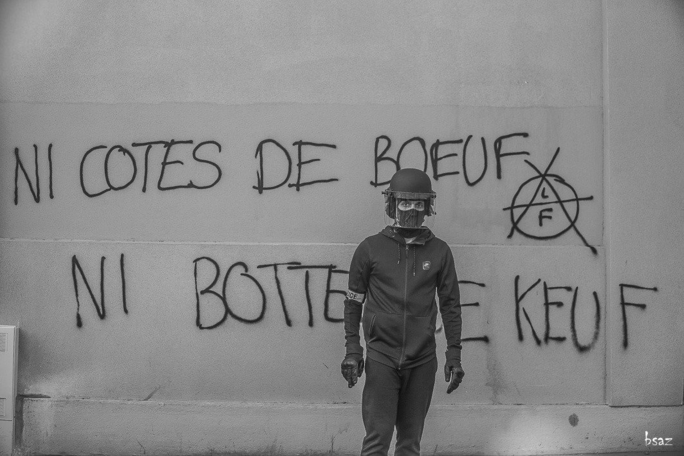 NI COTES DE BOEUF
ALF
NI BOTTE E KEUF
bsaz